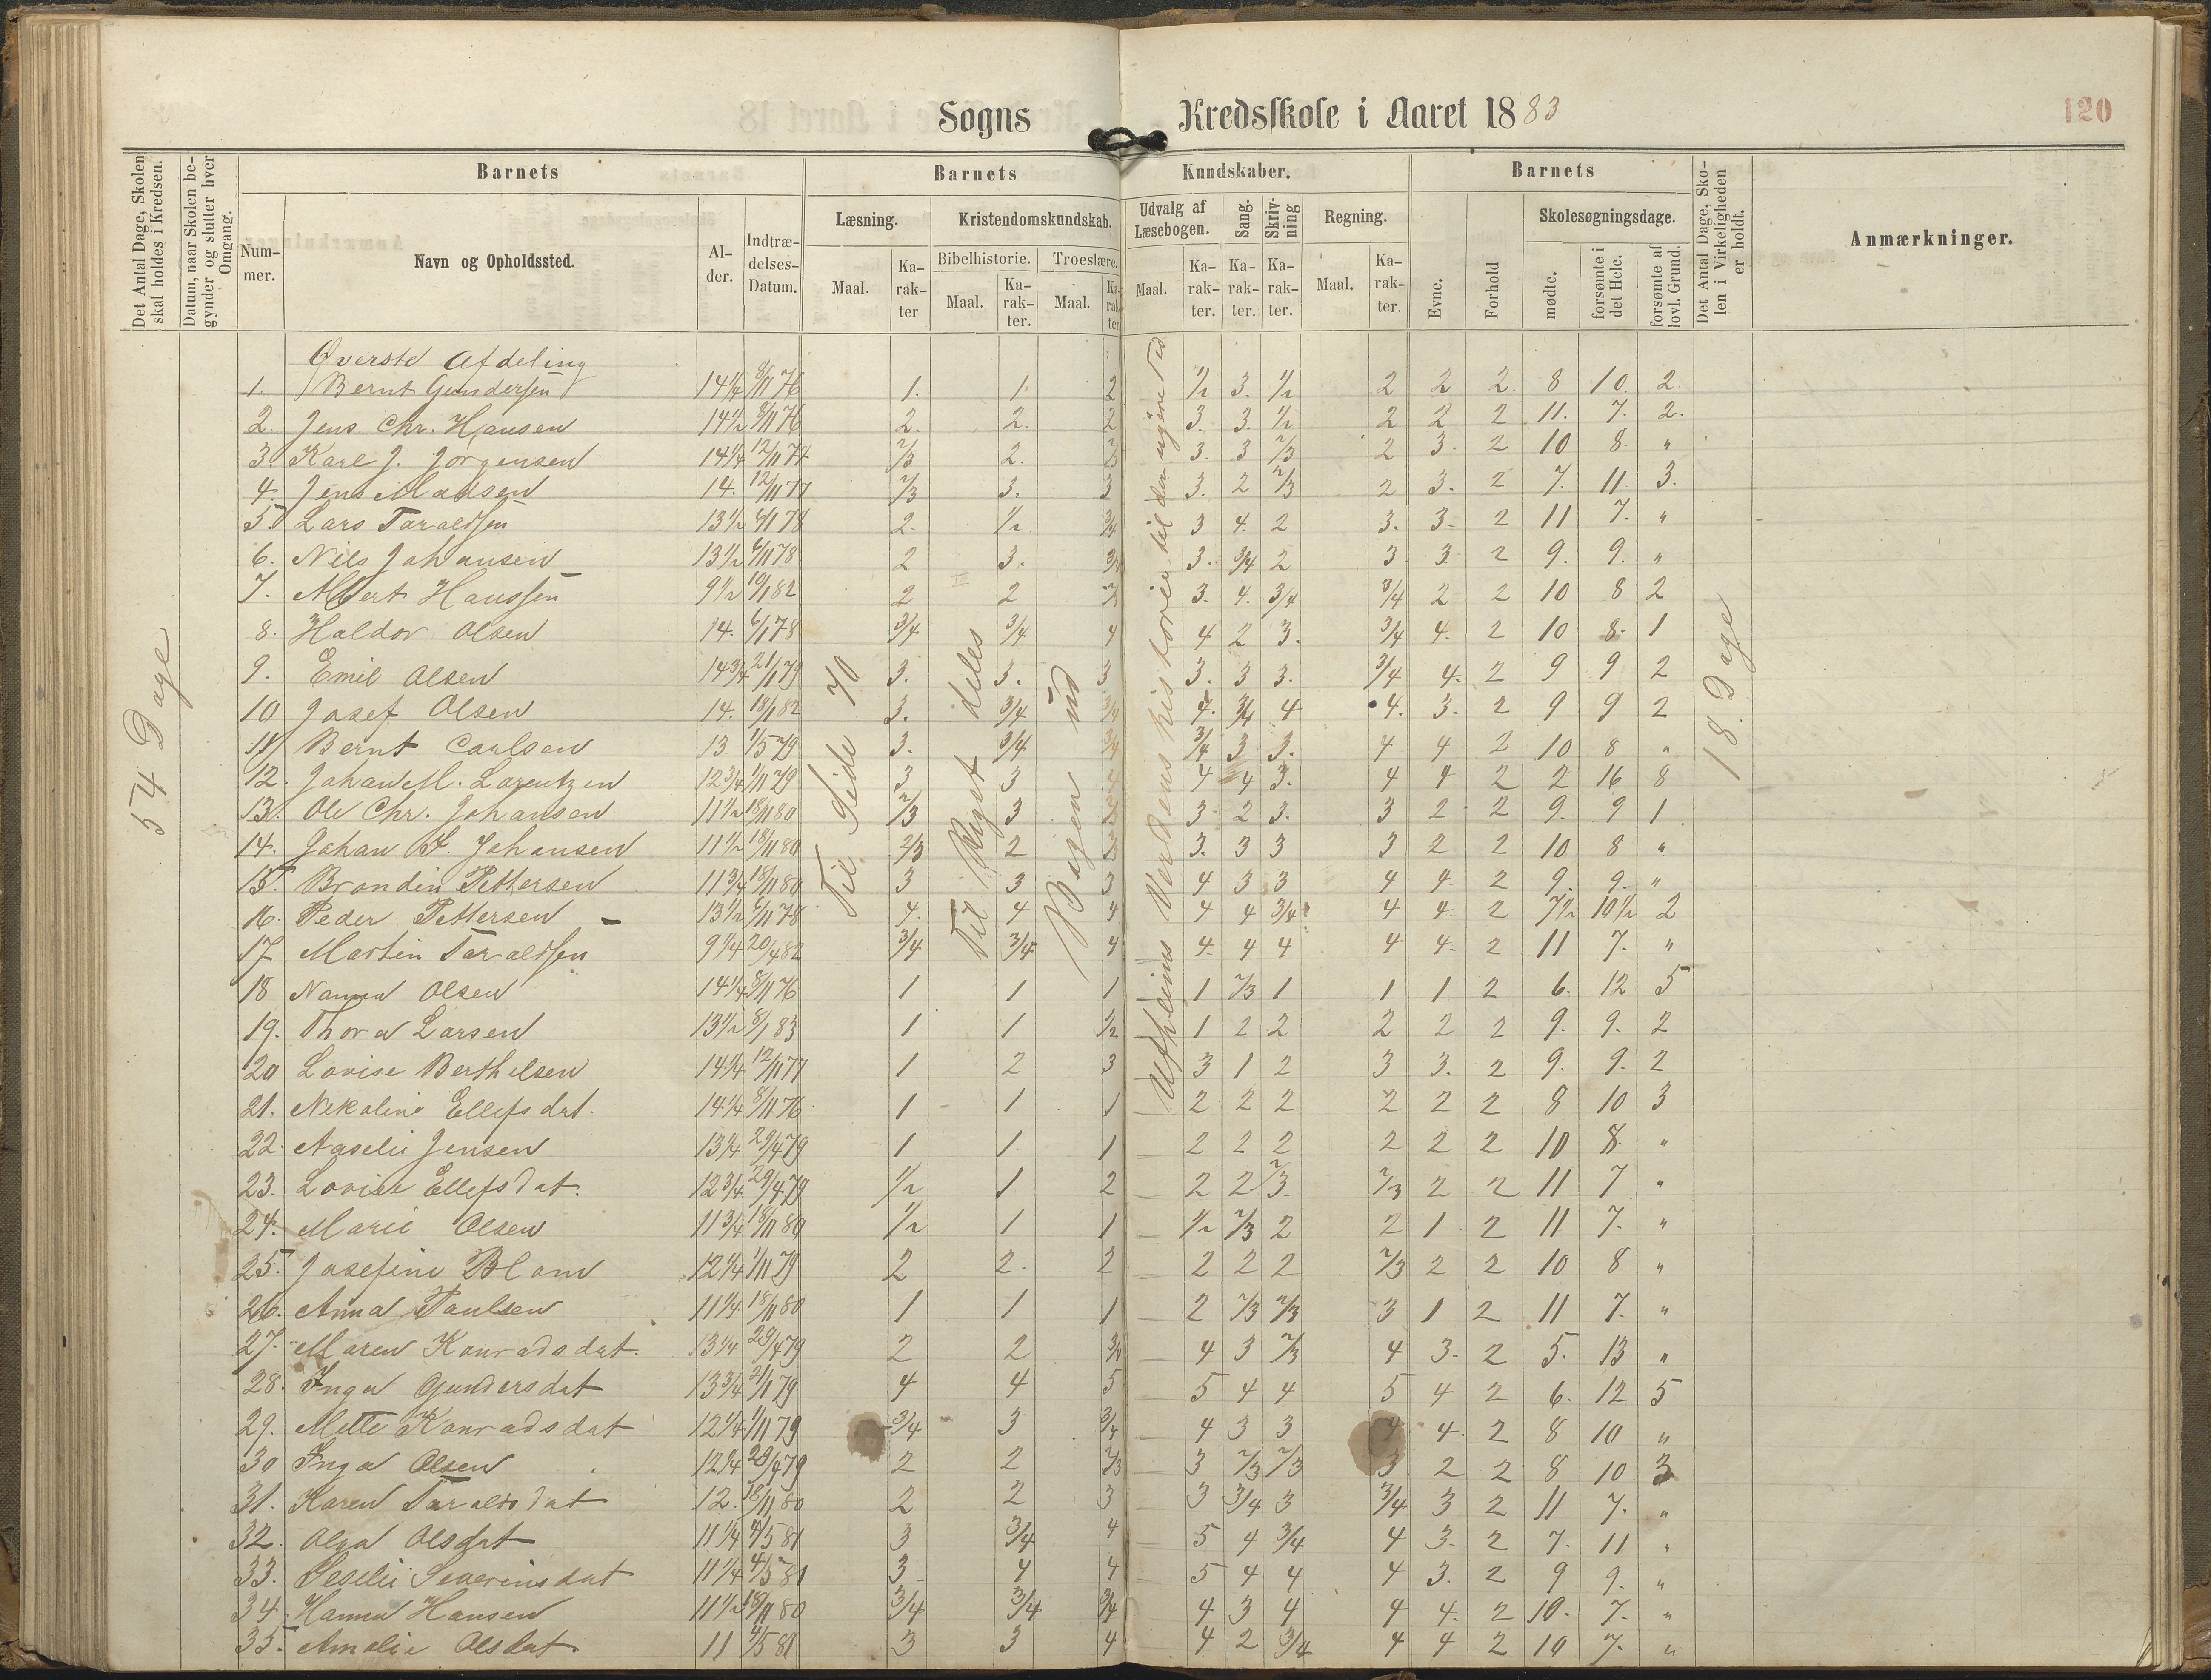 Sogns Kredsskole i Aaret 1883
120
Det Antal Dage, Skolen skal holdes i Kredsen.
Datum, naar Skolen begynder og slutter hver Omgang.
Barnets
Barnets Kundskaber.
Barnets
Det Antal Dage, Skolen i Virkeligheden er holdt.
Anmærkninger.
Nummer.
Navn og Opholdssted.
Alder.
Indtrædelses-Datum.
Læsning.
Kristendomskundskab.
Udvalg af Læsebogen.
Sang.
Skrivning
Regning.
Evne.
Forhold
Skolesøgningsdage.
Bibelhistorie.
Troeslære.
Maal.
Karakter
Maal.
Karakter.
Maal.
Karakter
Maal.
Karakter.
Karakter.
Karakter.
Maal.
Karakter.
mødte.
forsømte i det Hele.
forsømte af lovl. Grund.
54 Dage
Til Side 70
Til Riget deles
Bogen ud
18 Dage
Øverste Afdeling
1. Bernt Gundersen 14 1/4 8/11 76 1. 1. 2 1/2 3. 1/2 2 2 2 8 10. 2
2. Jens Chr. Hansen 14 1/2 8/11 76 2. 2. 2 3. 3. 1/2 2 2 2 11. 7. 2.
3. Karl J. Jorgensen 14 1/4 12/11 77 2/3 2. 3. 3 2/3 2 3. 2 10 8. "
4. Jens Madsen 14. 12/11 77 2/3 3. 3 3. 2 2/3 2 3. 2 7. 11 3.
5. Lars Taraldsen 13 1/2 6/1 78 2. 1/2 3/4 3 4. 2 3. 3. 2 11 7. "
6. Nils Johansen 13 1/2 6/11 78 2 3. 3/4 3. 3/4 2 3 3 2 9. 9. "
7. Albert Hanssen 9 1/2 19/1 82 2 2 3. 4. 3/4 3/4 2 2 10 8 2
8. Haldor Olsen 14. 6/1 78 3/4 3/4 4 4 2 3. 3/4 4. 2 10 8. 1
9. Emil Olsen 14 3/4 21/1 79 3. 3. 3 3. 3 3. 3/4 4. 2 9 9 2
10 Josef Olsen 14. 18/1 82 3. 3/4 3/4 4. 3/4 4 4. 3. 2 9 9 2
11 Bernt Carlsen 13. 1/5 79 3. 3/4 3/4 3/4 3 3. 4 4 2 10 8 "
12. Johan M. Lorentzen 12 3/4 1/11 79 3 3 4 4 4 3. 4 4 2 2 16 8
13. Ole Chr. Johansen 11 1/2 18/11 80 2/3 3 3 2 3. 3 2 2 9. 9 1
14. Johan F. Johansen 11 1/2 18/11 80 2/3 2 3. 3 3 3 2 2 10 8 "
15. Brondin Pettersen 11 3/4 18/11 80 3 3 3 4 3 3 4 4. 2 9. 9. "
16. Peder Pettersen 13 1/2 6/11 78 4. 4 4 4 4 3/4 4 4. 2 7 1/2 10 1/2 2
17 Martin Taraldsen 9 1/4 20/4 82 3/4 3/4 4 4. 4 4 4 4. 2 11 7. "
18 Nanna Olsen 14 1/4 8/11 76 1 1 1 1 2/3 1 1 1 2 6. 12 5
19. Thora Larsen 13 1/2 8/1 83 1 1 1/2 1 2 2 2 2 2 9. 9. 2
20 Lovise Berthelsen 14 1/4 12/11 77 1 2 3 3 1 2 3 3. 2 9. 9. 2
21. Nikoline Ellefsdat. 14 1/4 8/11 76 1 1 1 2 2 2 2 2 2 8 10 3
22. Aaselie Jensen 13 1/4 29/4 79 1 1 1 2 2 2 2 2 2 10 8. "
23. Lovise Ellefsdat. 12 3/4 29/4 79 1/2 1 2 2 2 2/3 2/3 2 2 11 7 "
24. Marie Olsen 11 3/4 18/11 80 1/2 1 1 1/2 2/3 2 2 1 2 11 7. "
25. Josefine Blom 12 1/4 1/11 79 2 2. 2 2 2 2 2/3 2 2 10 8 "
26. Anna Paulsen 11 1/4 18/11 80 1 1 1 2 2/3 2/3 3 1 2 11 7. "
27. Maren Konradsdat. 13 1/4 29/4 79 2 2 3/4 4 3 2/3 4 3. 2 5. 13 "
28. Inga Gundersdat 13 3/4 21/1 79 4 4 5 5 4 4 5 4 2 6. 12 5
29. Mette Konradsdat 12 1/4 1/11 79 3/4 3 3/4 4 3 3 4 4. 2 8 10 "
30 Inga Olsen 12 1/4 29/4 79 2 2 2/3 3 2/3 2/3 3 2 2 8 10 3
31. Karen Taraldsdat 12. 18/11 80 2 2 3 3 3/4 3 3/4 3 2 11 7. "
32. Olga Olsdat 11 1/4 4/5 81 3 3/4 4 5 4 3/4 4 3. 2 7. 11 "
33. Seselie Severinsdat 11 1/4 4/5 81 3 4 4 5 4 4 4 3. 2 9 9. "
34. Hanna Hansen 11 1/2 18/11 80 3/4 3/4 3/4 4 3 4 4 4. 2 10. 7. "
35. Amalie Olsdat 11 4/5 81 3 3 4 4 2 3/4 4 4 2 10 7. "